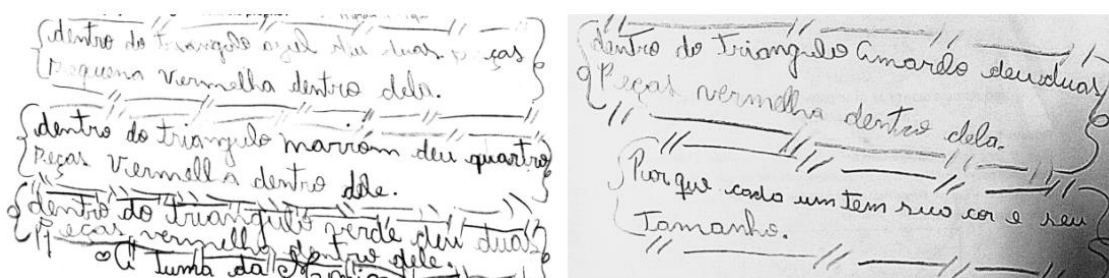 dentro do triangulo azul deu duas peças
Pequena vermella dentro dela.
dentro do triangulo marrom deu quartro
Peças vermella dentro dele.
dentro do triangulo verde deu duas
Peças vermella dentro dele.
tuma da
dentro do Triangulo Amarélo deu duas
Peças vermelha dentro dela.
Porque cada um tem sua cor e seu
Tamanho.